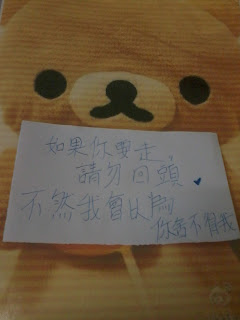 如果你要走,
請勿回頭
不然我會以為
你舍不得我